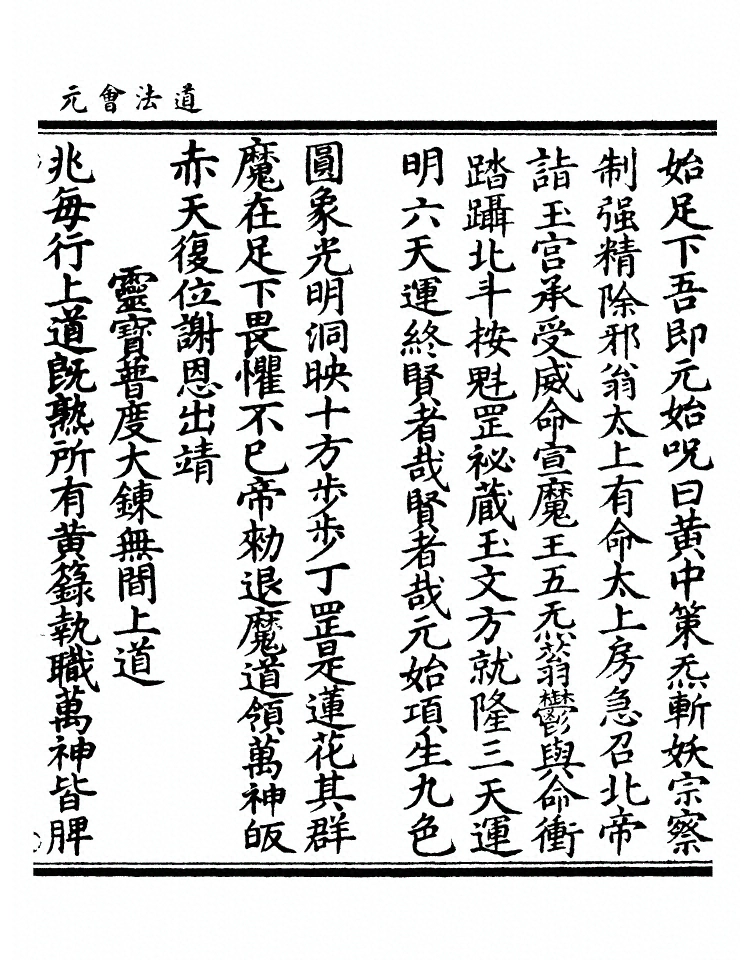 道法會元
始足下吾即元始呪曰黃中策炁斬妖宗察
制强精除邪翁太上有命太上房急召北帝
詣玉宫承受威命宣魔王五炁蓊鬱與命衝
踏躡北斗按魁罡祕蔵玉文方就隆三天運
明六天運終賢者哉賢者哉元始項生九色
圓象光明洞映十方步步丁罡是蓮花其群
魔在足下畏懼不已帝勑退魔道領萬神皈
赤天復位謝恩出靖
靈寶普度大鍊無間上道
兆每行上道既熟所有黃籙執職萬神皆脾